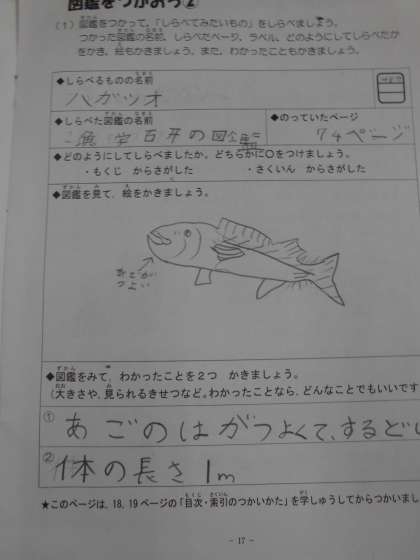 図鑑をつかおう②
(1) 図鑑をつかって、「しらべてみたいもの」をしらべましょう。
つかった図鑑の名前、しらべたページ、ラベル、どのようにしてしらべたか
をかき、絵もかきましょう。また、わかったこともかきましょう。
◆しらべるものの名前
ハガツオ
◆しらべた図鑑の名前
◆のっていたページ
74ページ
◆どのようにしてしらべましたか。どちらかに○をつけましょう。
・もくじ からさがした ・さくいん からさがした
◆図鑑を見て、絵をかきましょう。
あごが
つよい
◆図鑑をみて、わかったことを2つ かきましょう。
(大きさや、見られるきせつなど。わかったことなら、どんなことでもいいです
① あごのはがつよくて、するどい
② 体の長さ 1m
★このページは、18, 19ページの「目次・索引のつかいかた」を学しゅうしてからつかいまし
- 17 -